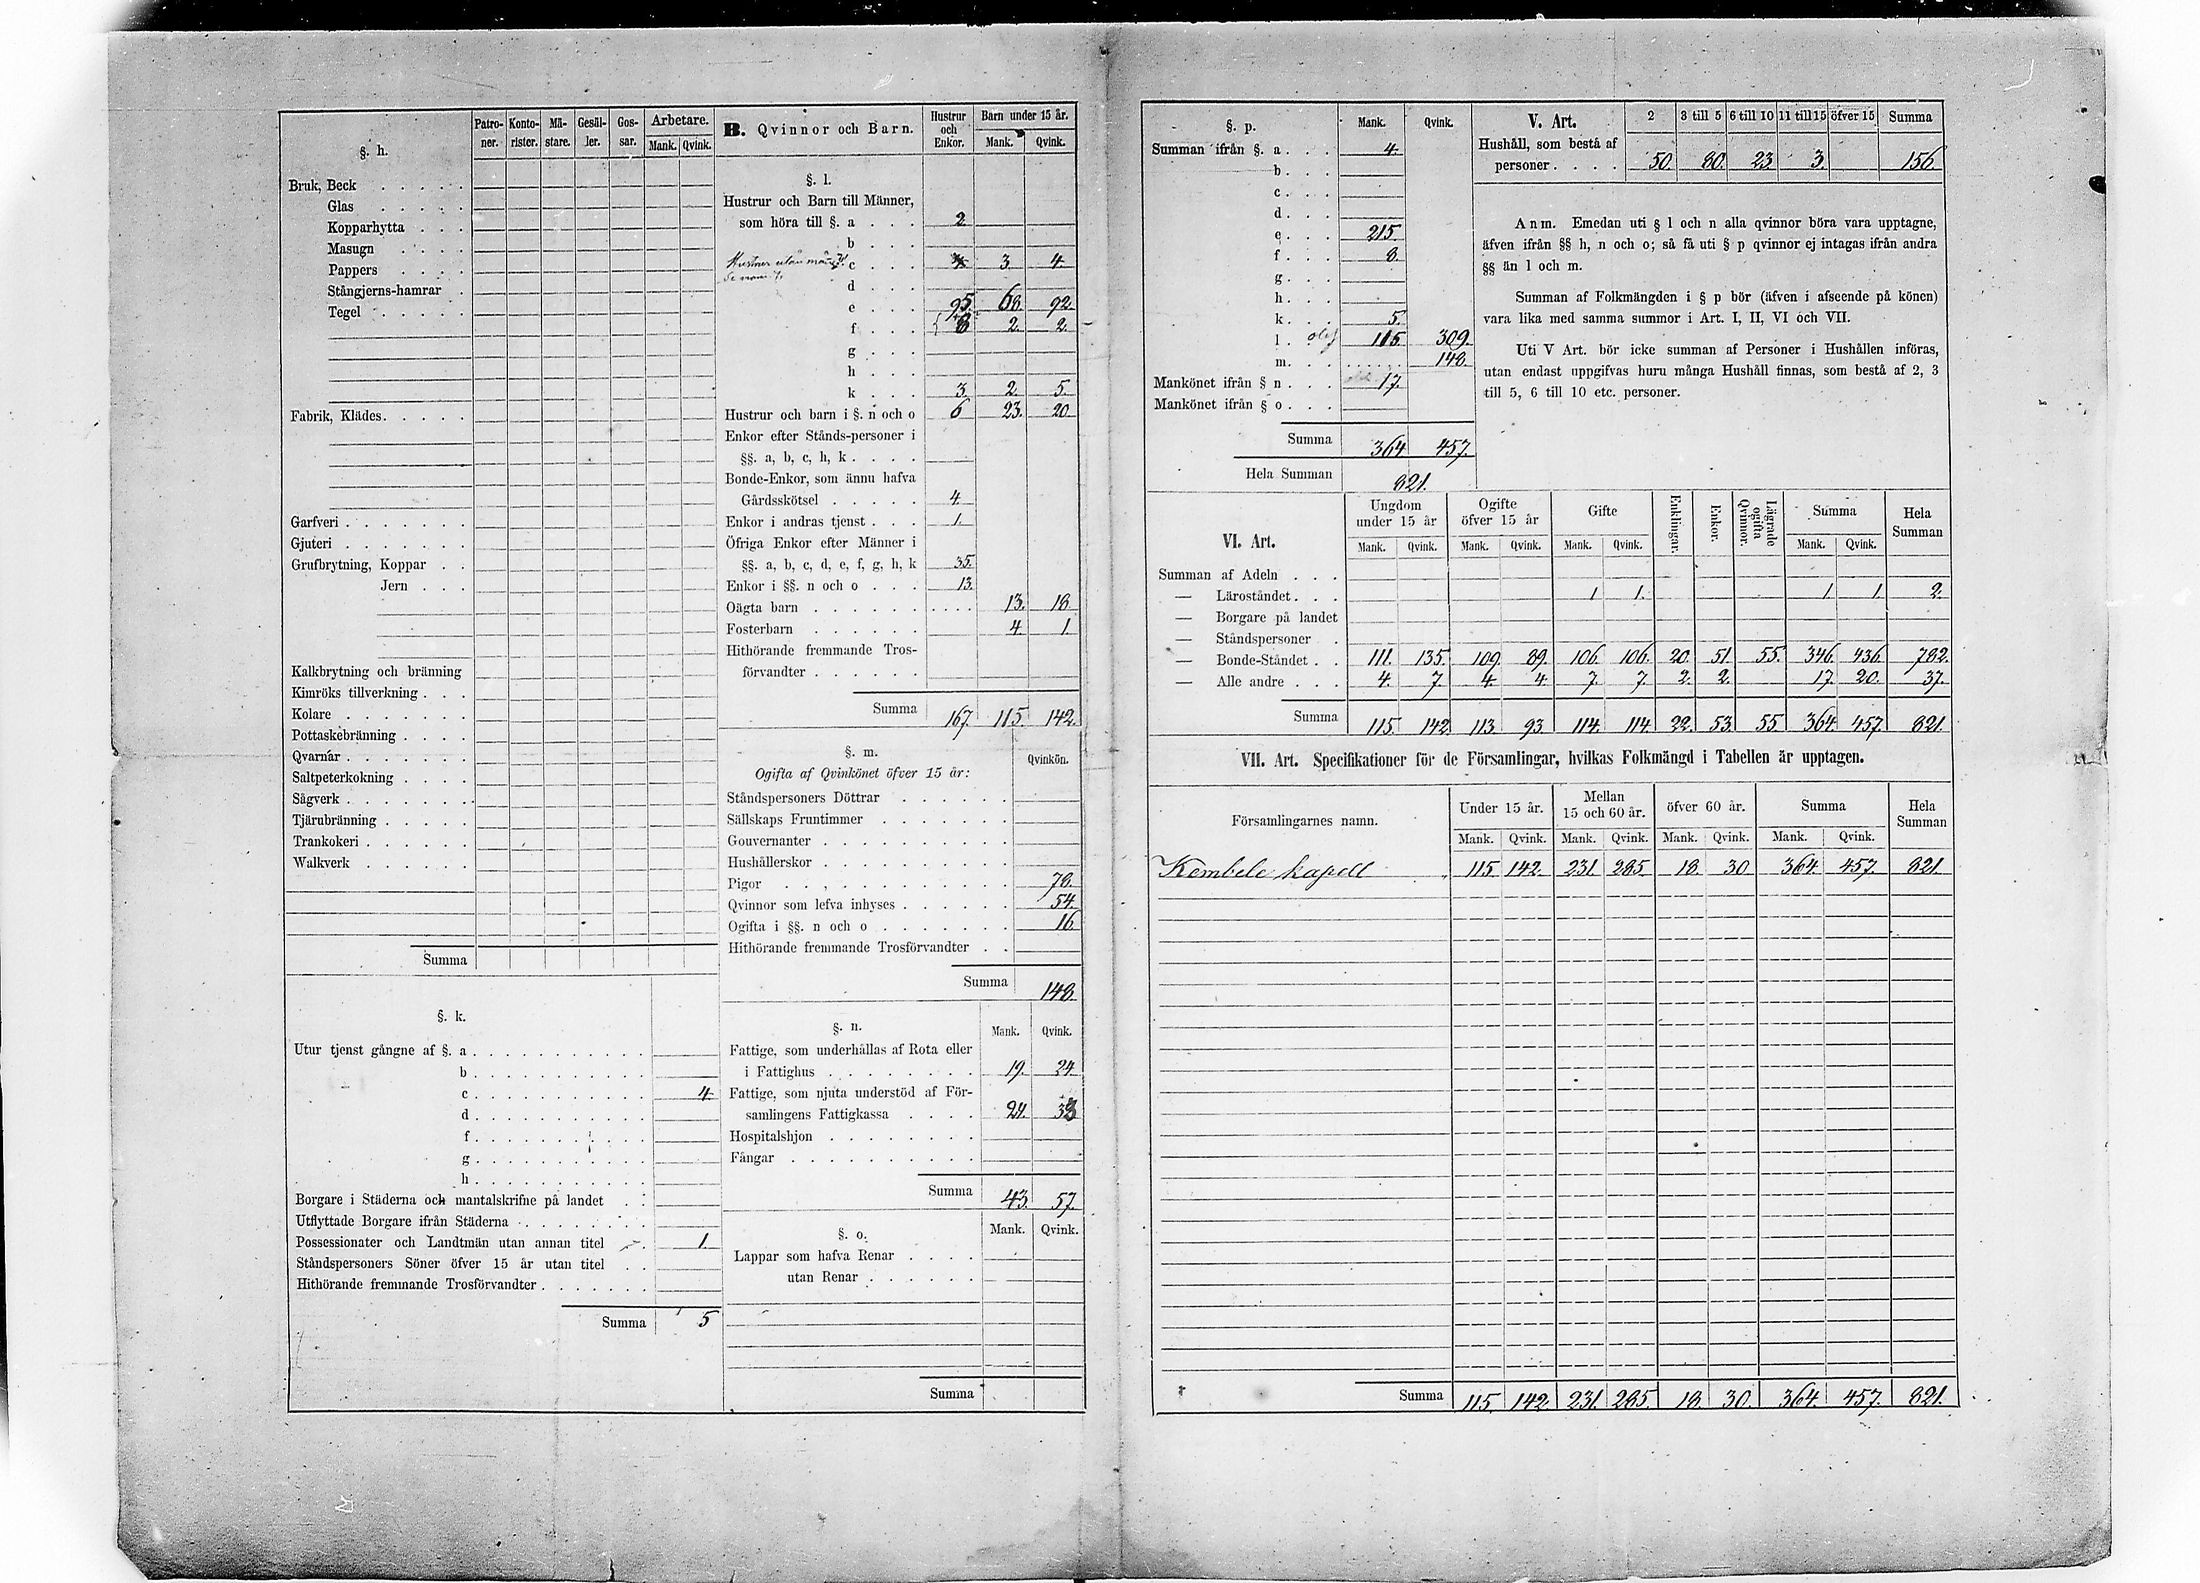 §. h.
Patro-ner. Konto-rister. Mä-stare. Gesäl-ler. Gos-sar. Arbetare. Mank. Qvink.
Bruk, Beck
Glas
Kopparhytta
Masugn
Pappers
Stångjerns-hamrar
Tegel
Fabrik, Klädes
Garfveri
Gjuteri
Grufbrytning, Koppar
Jern
Kalkbrytning och bränning
Kimröks tillverkning
Kolare
Pottaskebränning
Qvarnar
Saltpeterkokning
Sågverk
Tjärubränning
Trankokeri
Walkverk
Summa
§. k.
Utur tjenst gångne af §. a
b
c 4
d
f
g
h
Borgare i Städerna och mantalskrifne på landet
Utflyttade Borgare ifrån Städerna
Possessionater och Landtmän utan annan titel 1.
Ståndspersoners Söner öfver 15 år utan titel
Hithörande fremmande Trosförvandter
Summa 5
B. Qvinnor och Barn. Hustrur och Enkor. Barn under 15 år. Mank. Qvink.
§. l.
Hustrur och Barn till Männer,
som höra till §. a 2
b
Hustrur utan
c 3. 4.
d
e 95. 68. 92.
f 2. 2.
g
h
k 3. 2. 5.
Hustrur och barn i §. n och o 6 23. 20.
Enkor efter Stånds-personer i
§§. a, b, c, h, k
Bonde-Enkor, som ännu hafva
Gårdsskötsel 4.
Enkor i andras tjenst 1.
Öfriga Enkor efter Männer i
§§. a, b, c, d, e, f, g, h, k 35.
Enkor i §§. n och o 13.
Oägta barn 13. 18.
Fosterbarn 4. 1.
Hithörande fremmande Tros-
förvandter
Summa 167. 115. 142.
§. m. Qvinkön.
Ogifta af Qvinkönet öfver 15 år:
Ståndspersoners Döttrar
Sällskaps Fruntimmer
Gouvernanter
Hushållerskor
Pigor 78.
Qvinnor som lefva inhyses 54.
Ogifta i §§. n och o 16.
Hithörande fremmande Trosförvandter
Summa 148.
§. n. Mank. Qvink.
Fattige, som underhållas af Rota eller
i Fattighus 19. 24
Fattige, som njuta understöd af För-
samlingens Fattigkassa 24. 33
Hospitalshjon
Fångar
Summa 43. 57.
§. o. Mank. Qvink.
Lappar som hafva Renar
utan Renar
Summa
§. p. Mank. Qvink.
Summan ifrån §. a 4.
b.
c.
d.
e. 215.
f. 8.
g.
h.
k. 5.
l. 115. 309.
m. 148.
Mankönet ifrån § n 17.
Mankönet ifrån § o
Summa 364 457.
Hela Summan 821.
V. Art. 2 3 till 5 6 till 10 11 till 15 öfver 15 Summa
Hushåll, som bestå af
personer 50. 80. 23. 3. 156.
Anm. Emedan uti § l och n alla qvinnor böra vara upptagne,
äfven ifrån §§ h, n och o; så få uti § p qvinnor ej intagas ifrån andra
§§ än l och m.
Summan af Folkmängden i § p bör (äfven i afseende på könen)
vara lika med samma summor i Art. I, II, VI och VII.
Uti V Art. bör icke summan af Personer i Hushållen införas,
utan endast uppgifvas huru många Hushåll finnas, som bestå af 2, 3
till 5, 6 till 10 etc. personer.
VI. Art. Ungdom under 15 år Ogifte öfver 15 år Gifte Enklingar. Enkor. Lägrade ogifta Qvinnor. Summa Hela Summan
Mank. Qvink. Mank. Qvink. Mank. Qvink. Mank. Qvink.
Summan af Adeln
— Läroståndet 1 1. 1. 1. 2.
— Borgare på landet
— Ståndspersoner
— Bonde-Ståndet 111. 135. 109. 89. 106. 106. 20. 51. 55. 346. 436. 782.
— Alle andre 4. 7 4. 4. 7. 7. 2. 2. 17. 20. 37.
Summa 115. 142. 113. 93. 114. 114. 22. 53. 55. 364. 457. 821.
VII. Art. Specifikationer för de Församlingar, hvilkas Folkmängd i Tabellen är upptagen.
Församlingarnes namn. Under 15 år. Mellan 15 och 60 år. öfver 60 år. Summa Hela Summan
Mank. Qvink. Mank. Qvink. Mank. Qvink. Mank. Qvink.
Kembele kapell 115 142. 231. 285. 18. 30 364. 457. 821.
Summa 115. 142. 231. 285. 18. 30. 364. 457. 821.